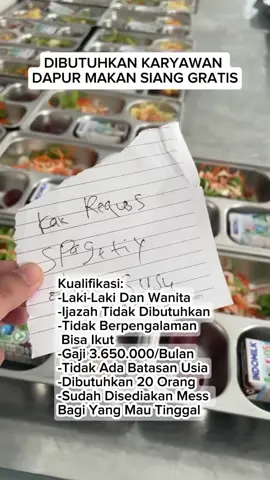 DIBUTUHKAN KARYAWAN
DAPUR MAKAN SIANG GRATIS
Kak Requs
Spagetiy
susu
Kualifikasi:
-Laki-Laki Dan Wanita
-Ijazah Tidak Dibutuhkan
-Tidak Berpengalaman
Bisa Ikut
-Gaji 3.650.000/Bulan
-Tidak Ada Batasan Usia
-Dibutuhkan 20 Orang
-Sudah Disediakan Mess
Bagi Yang Mau Tinggal
INDOMILK